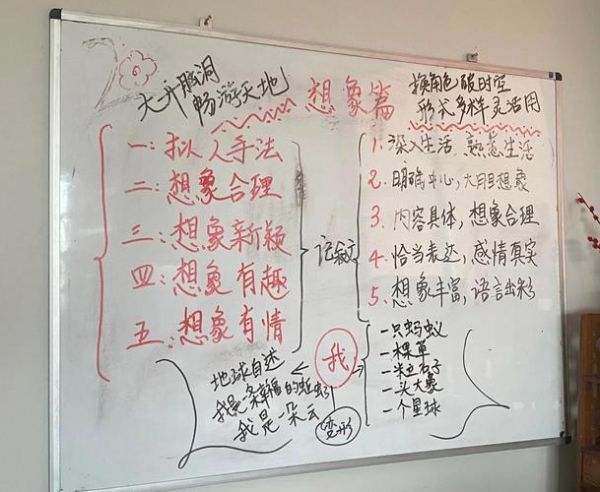 大开脑洞
畅游天地
想象篇
换角色破时空
形式多样灵活用
一:拟人手法
二:想象合理
三:想象新颖
四:想象有趣
五:想象有情
记叙文
1.深入生活,熟悉生活
2.明确中心,大胆想象
3.内容具体,想象合理
4.恰当表达,感情真实
5.想象丰富,语言出彩
地球自述
我是一条幸福的蚯蚓
我是一朵云
我
变形
一只蚂蚁
一棵草
一粒石子
一头大象
一个星球